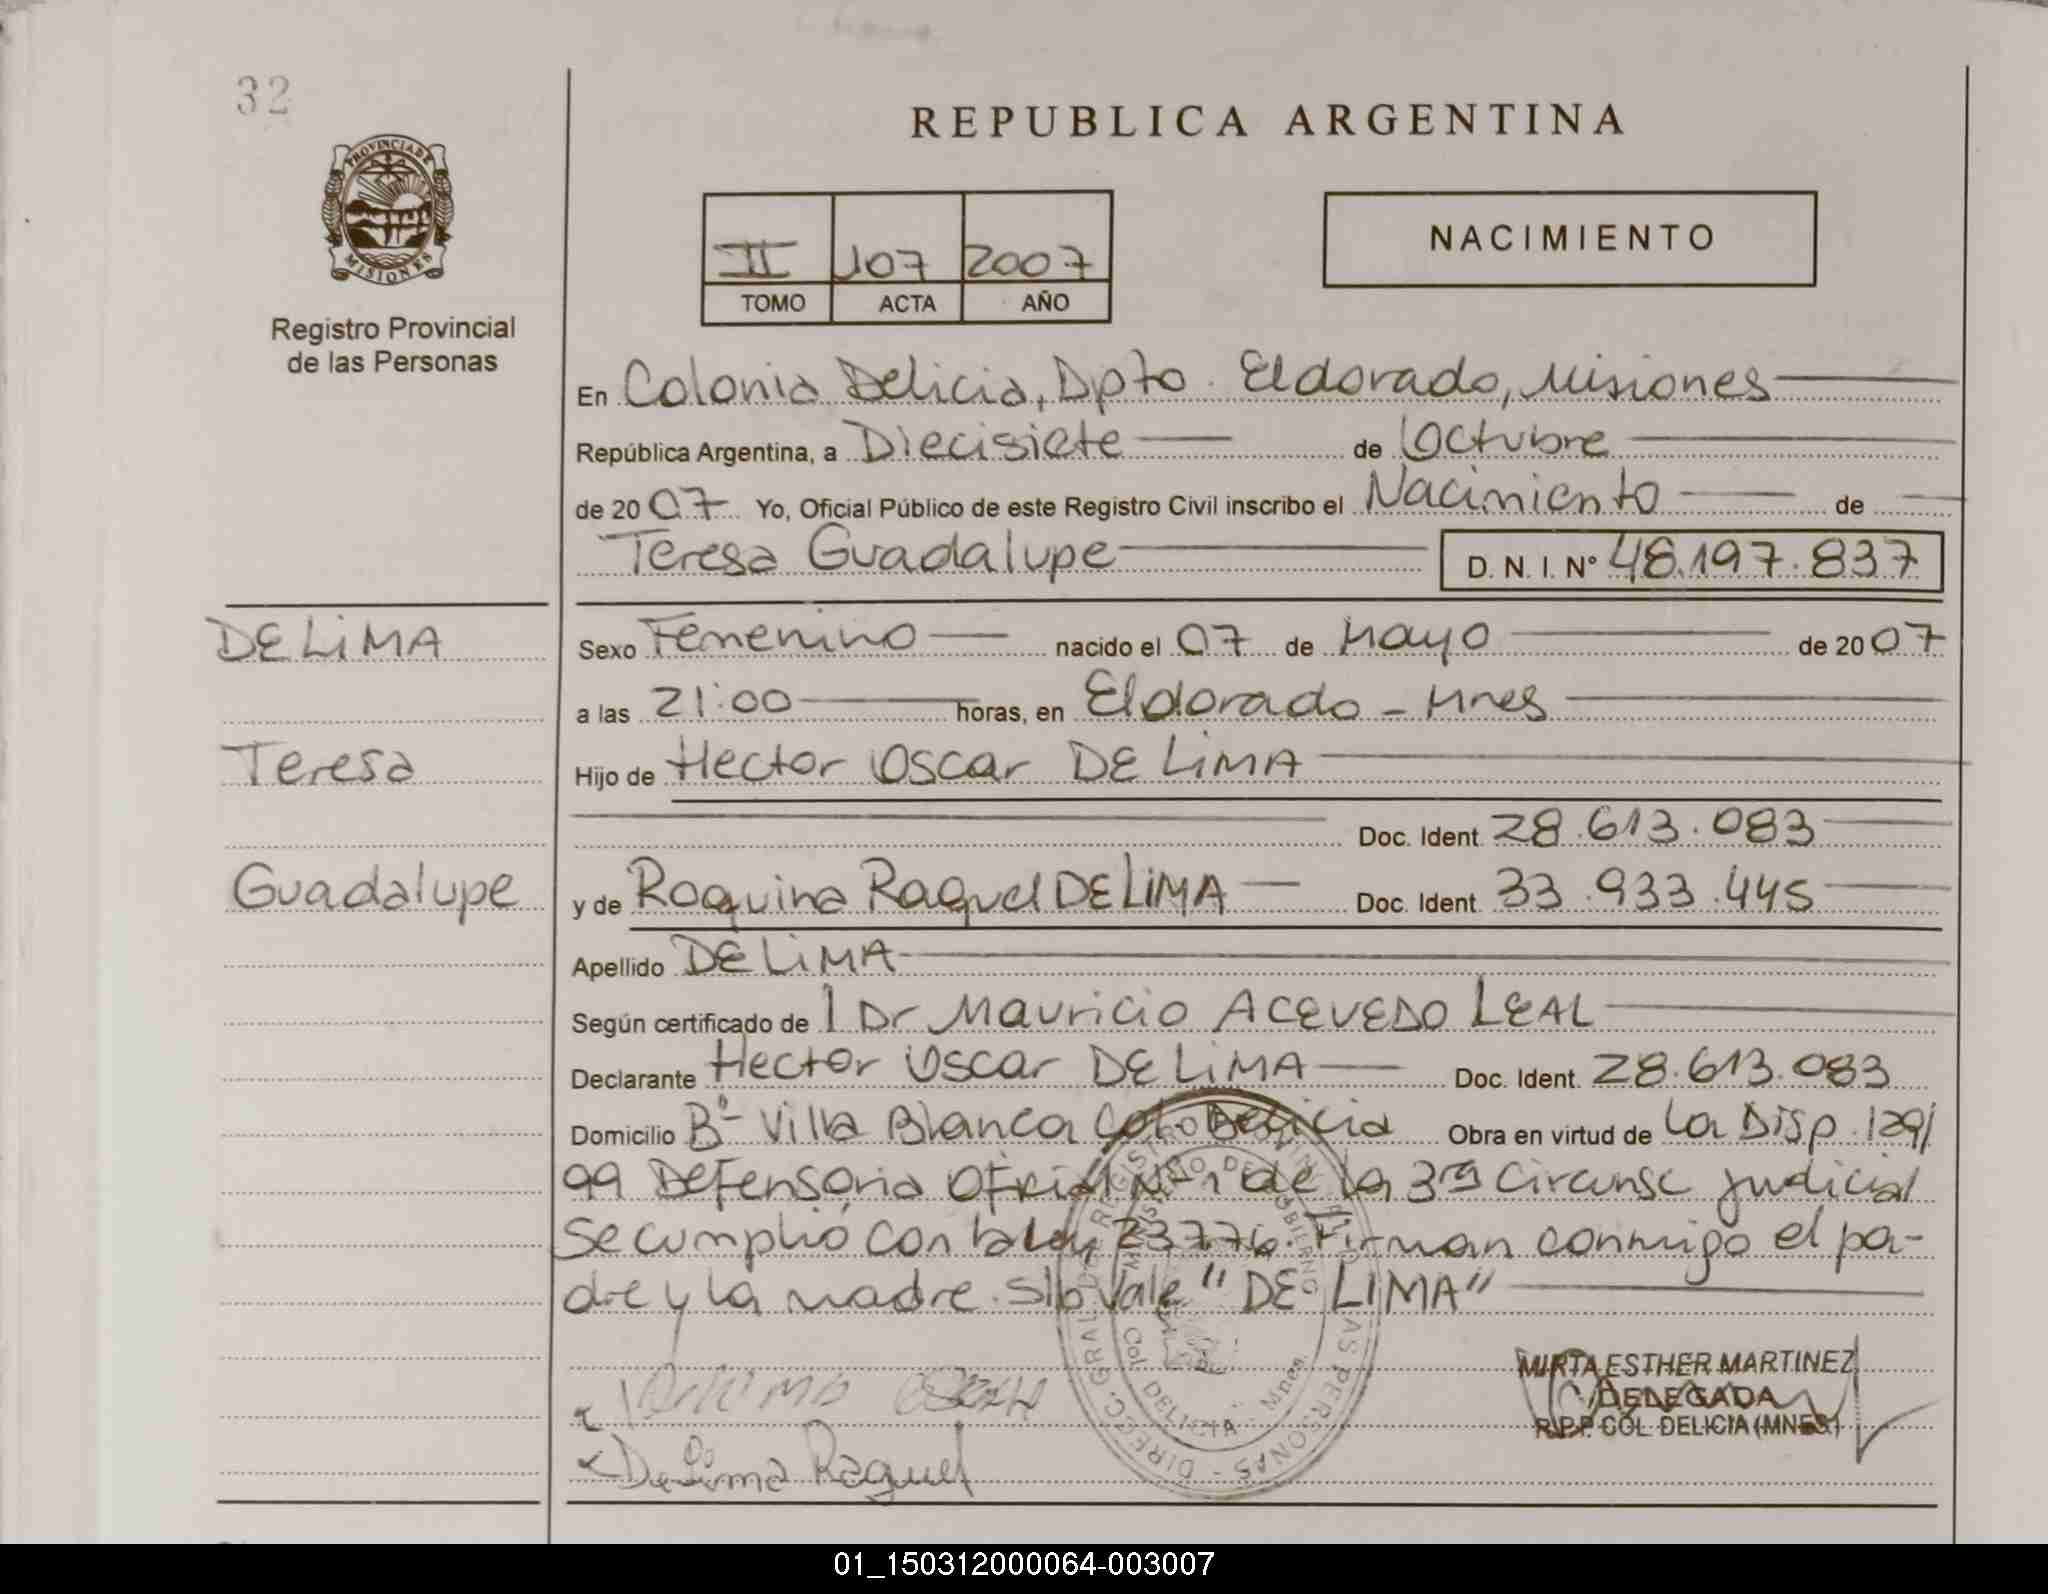 32
REPUBLICA ARGENTINA
PROVINCIA DE
MISIONES
II 107 2007
TOMO ACTA AÑO
NACIMIENTO
Registro Provincial
de las Personas
En Colonia Delicia, Dpto. Eldorado, Misiones
República Argentina, a Diecisiete de Octubre
de 2007 Yo, Oficial Público de este Registro Civil inscribo el Nacimiento de
Teresa Guadalupe D. N. I. N° 48.197.837
DE LIMA
Teresa
Guadalupe
Sexo Femenino nacido el 07 de Mayo de 2007
a las 21:00 horas, en Eldorado - Mnes
Hijo de Hector Oscar DE LIMA
Doc. Ident. 28.613.083
y de Roquina Raquel DE LIMA Doc. Ident. 33.933.445
Apellido DE LIMA
Según certificado de 1 Dr Mauricio ACEVEDO LEAL
Declarante Hector Oscar DE LIMA Doc. Ident. 28.613.083
Domicilio Bº Villa Blanca Delicia Obra en virtud de la Disp. 129/
99 Defensoria Oficial Nº 1 de la 3ra Circunsc Judicial
Se cumplió con la ley 23776. Firman conmigo el pa-
dre y la madre. S/b Vale "DE LIMA"
MIRTA ESTHER MARTINEZ
DELEGADA
R.P.P. COL. DELICIA (MNES)
De Lima Raquel
DIREC. GRAL. DE LAS PERSONAS
Col. DELICIA - Mnes.
01_150312000064-003007